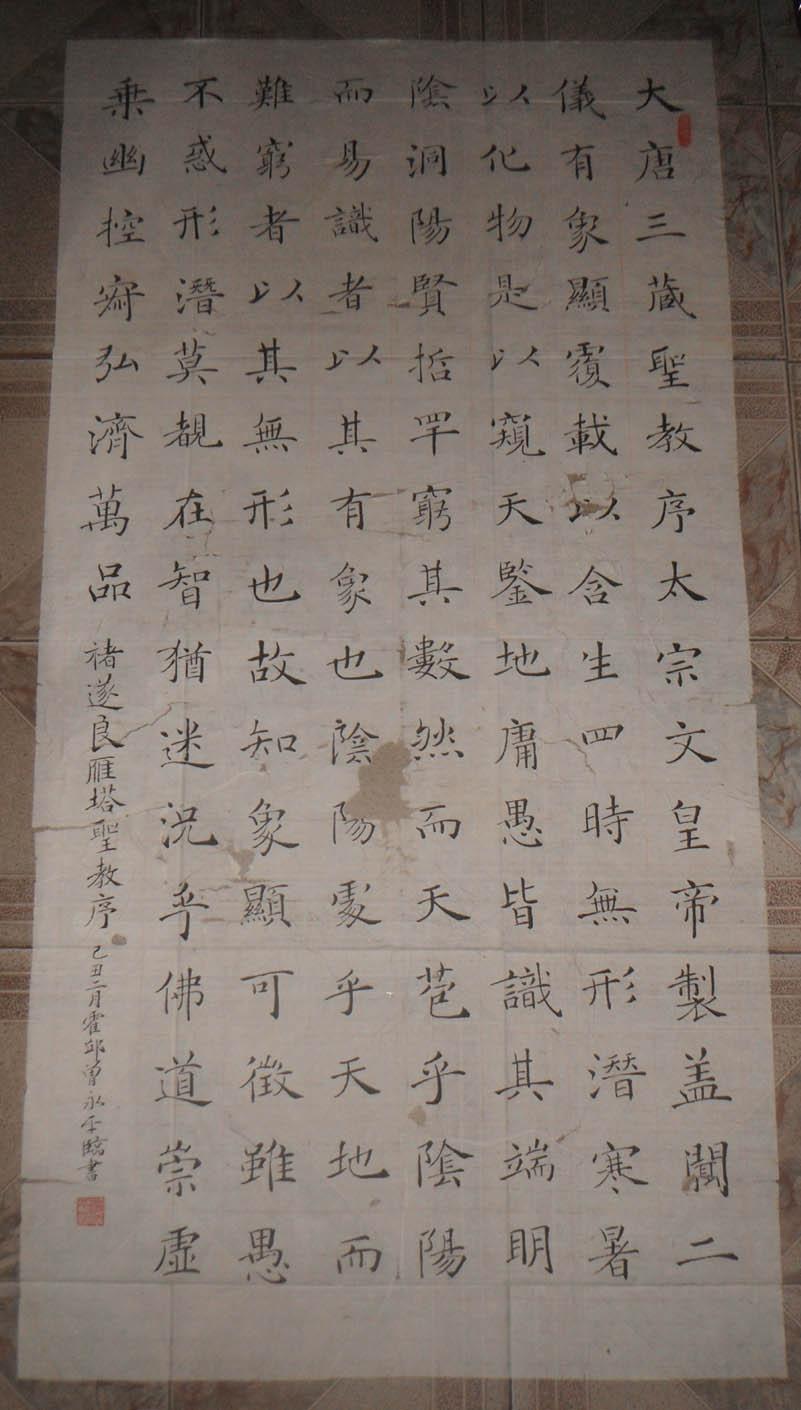 大唐三蔵聖教序太宗文皇帝製盖聞二
儀有象顯覆載以含生四時無形潛寒暑
以化物是以窺天鑒地庸愚皆識其端明
陰洞陽賢哲罕窮其數然而天苞乎陰陽
而易識者以其有象也陰陽處乎天地而
難窮者以其無形也故知象顯可徵雖愚
不惑形潛莫覩在智猶迷況乎佛道崇虛
乗幽控寂弘濟萬品
褚遂良雁塔聖教序
己丑二月霍邱曾永 臨書